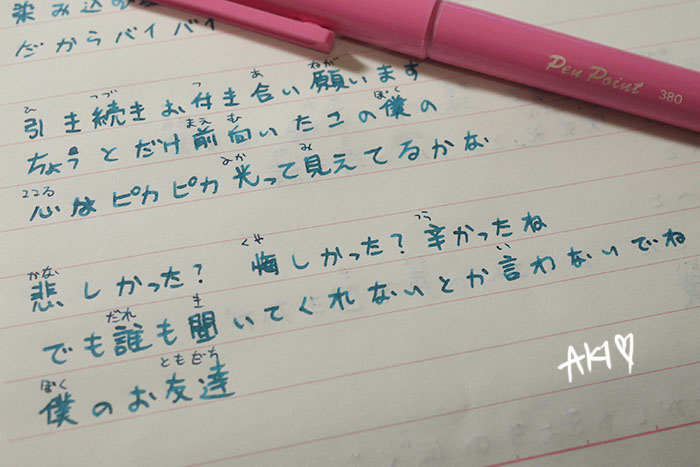 染み込
だからバイバイ
引き続きお付き合い願います
ちょうとだけ前向いたこの僕の
心はピカピカ光って見えてるかな
悲しかった? 悔しかった?辛かったね
でも誰も聞いてくれないとか言わないでね
僕のお友達
Pen Point 380
AKI♡